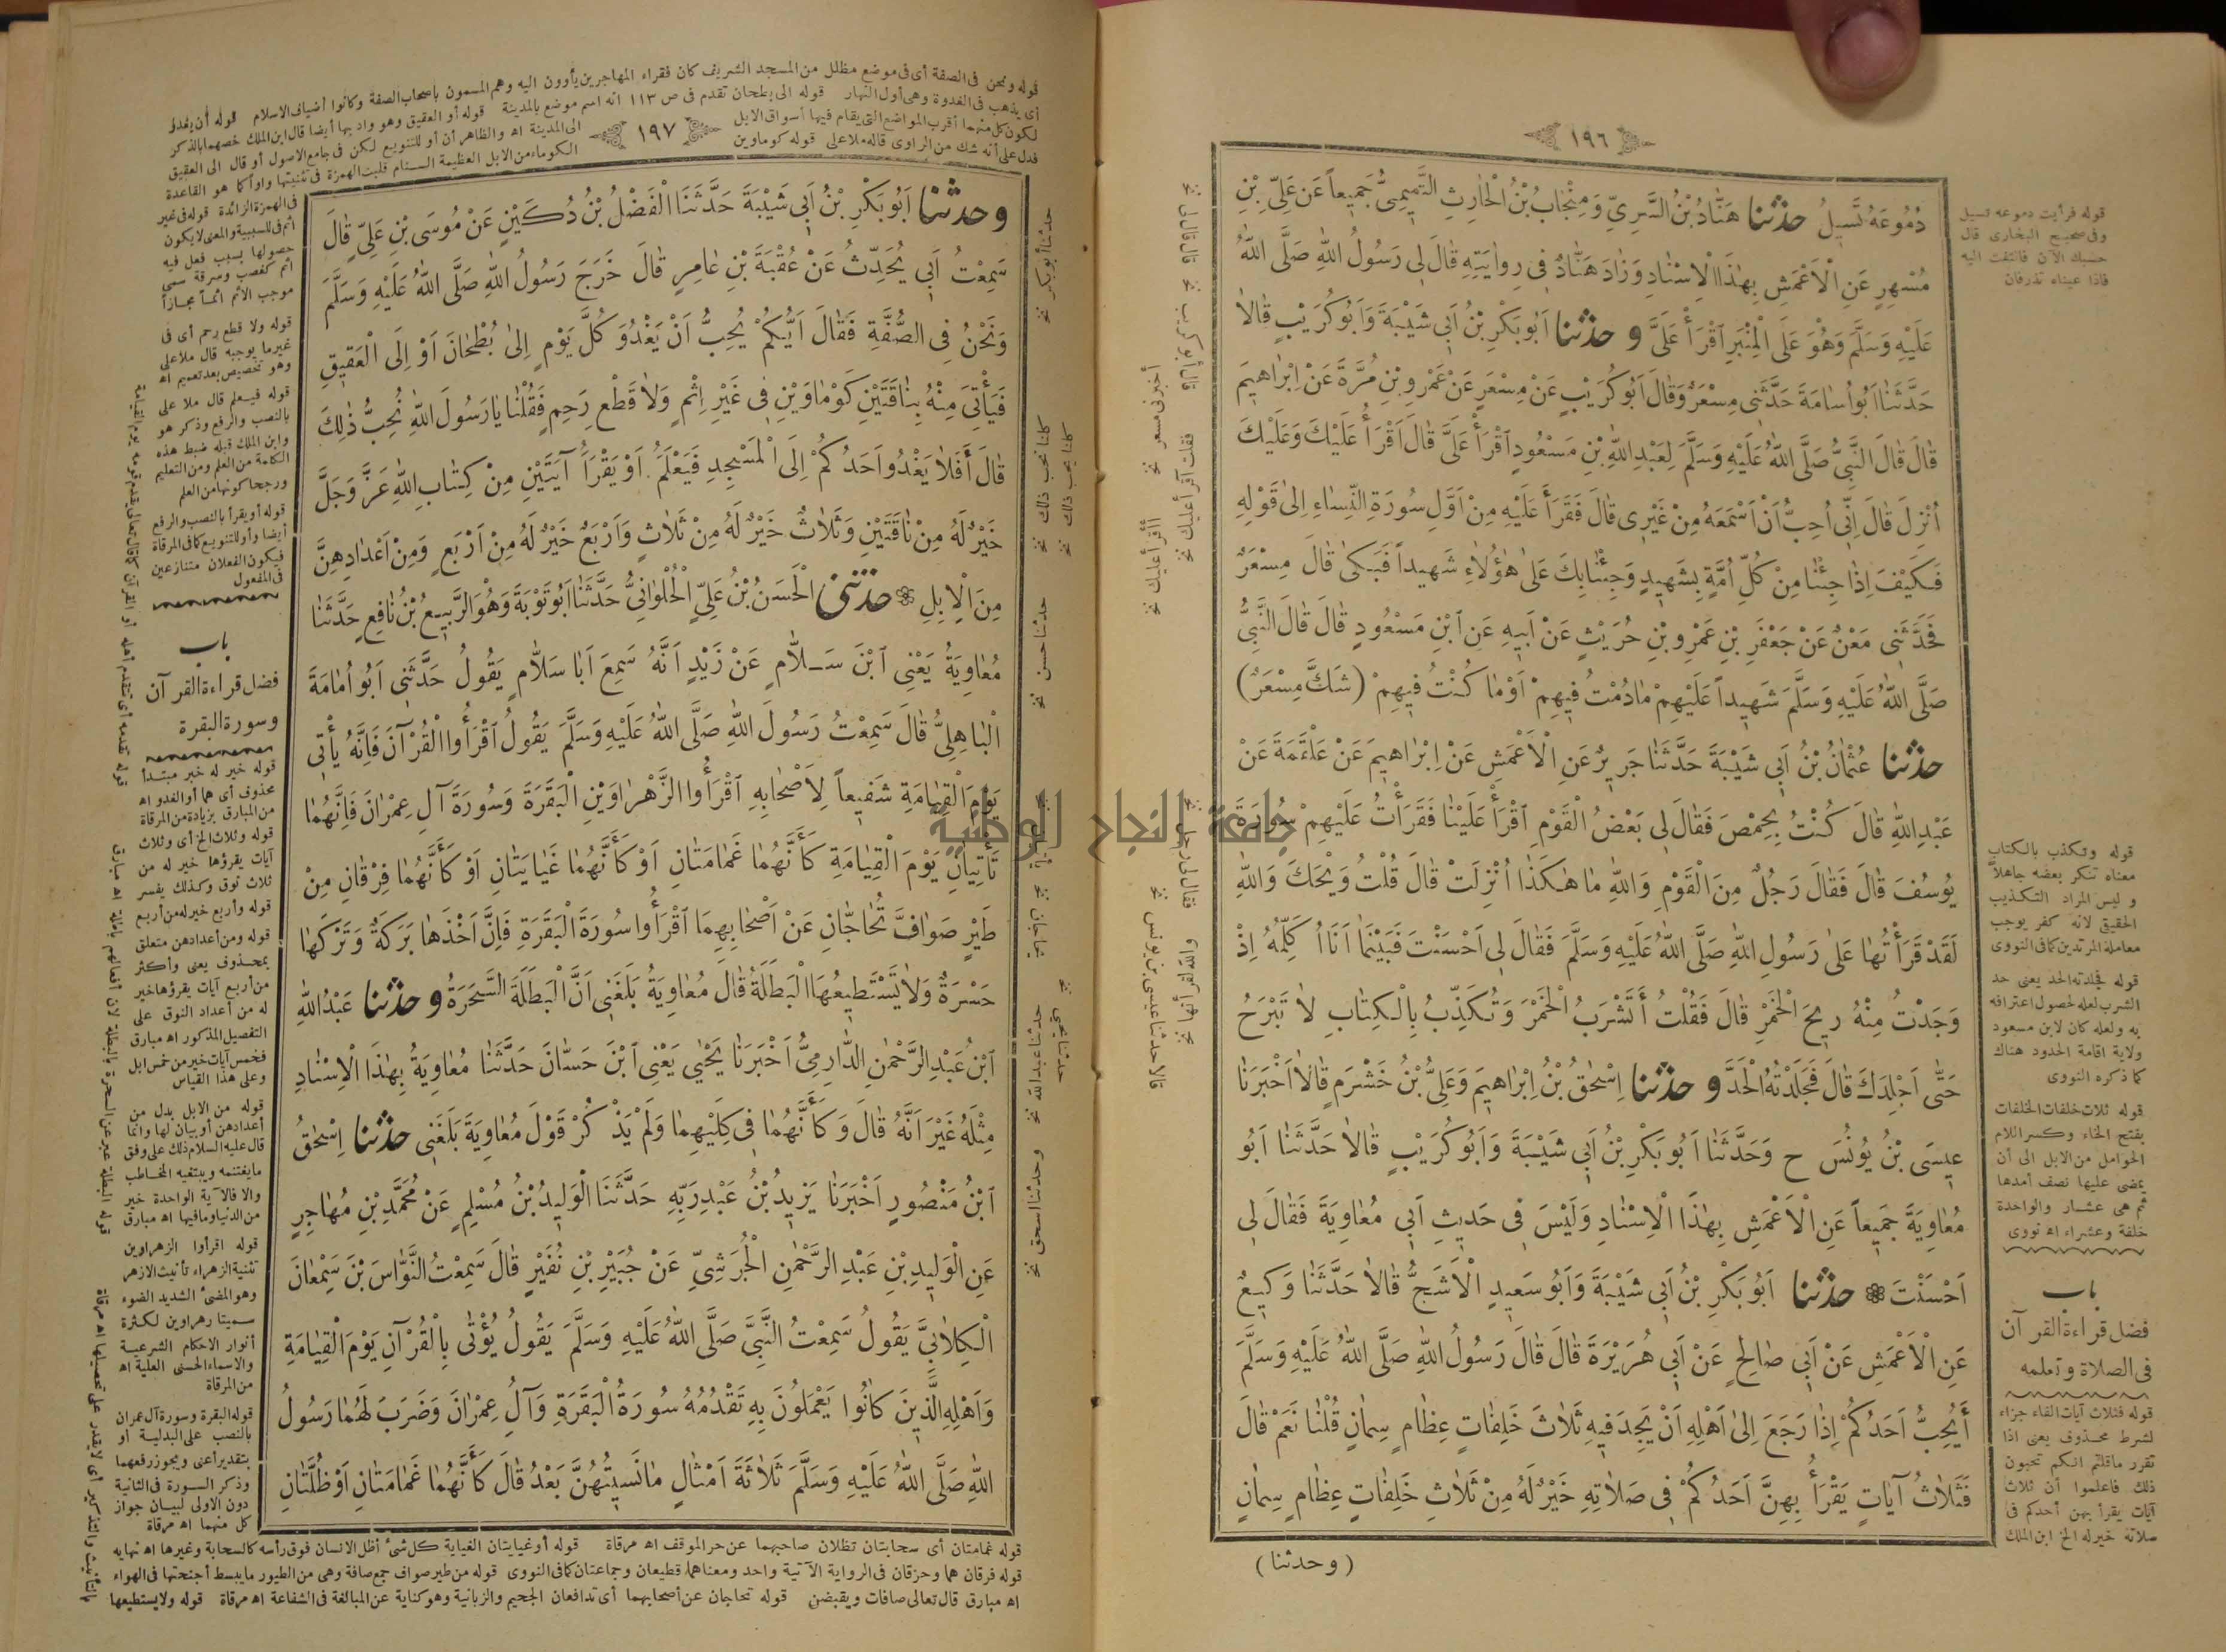 ١٩٦
دُمُوعَهُ تَسِيلُ حدثنا هَنَّادُ بْنُ السَّرِيِّ وَمِنْجَابُ بْنُ الْحَارِثِ التَّمِيمِيُّ جَمِيعاً عَنْ عَلِيِّ بْنِ
مُسْهِرٍ عَنِ الْاَعْمَشِ بِهٰذَا الْاِسْنَادِ وَزَادَ هَنَّادٌ فِي رِوَايَتِهِ قَالَ لِي رَسُولُ اللّٰهِ صَلَّى اللّٰهُ
عَلَيْهِ وَسَلَّمَ وَهُوَ عَلَى الْمِنْبَرِ اَقْرَأْ عَلَيَّ و حدثنا اَبُو بَكْرِ بْنُ اَبِي شَيْبَةَ وَاَبُو كُرَيْبٍ قَالَا
حَدَّثَنَا اَبُو اُسَامَةَ حَدَّثَنِي مِسْعَرٌ وَقَالَ اَبُو كُرَيْبٍ عَنْ مِسْعَرٍ عَنْ عَمْرِو بْنِ مُرَّةَ عَنْ اِبْرَاهِيمَ
قَالَ قَالَ النَّبِيُّ صَلَّى اللّٰهُ عَلَيْهِ وَسَلَّمَ لِعَبْدِ اللّٰهِ بْنِ مَسْعُودٍ اَقْرَأْ عَلَيَّ قَالَ اَقْرَأُ عَلَيْكَ وَعَلَيْكَ
اُنْزِلَ قَالَ اِنِّي اُحِبُّ اَنْ اَسْمَعَهُ مِنْ غَيْرِي قَالَ فَقَرَأَ عَلَيْهِ مِنْ اَوَّلِ سُورَةِ النِّسَاءِ اِلَى قَوْلِهِ
فَكَيْفَ اِذَا جِئْنَا مِنْ كُلِّ اُمَّةٍ بِشَهِيدٍ وَجِئْنَا بِكَ عَلَى هٰؤُلَاءِ شَهِيداً فَبَكَى قَالَ مِسْعَرٌ
فَحَدَّثَنِي مَعْنٌ عَنْ جَعْفَرِ بْنِ عَمْرِو بْنِ حُرَيْثٍ عَنْ اَبِيهِ عَنِ ابْنِ مَسْعُودٍ قَالَ قَالَ النَّبِيُّ
صَلَّى اللّٰهُ عَلَيْهِ وَسَلَّمَ شَهِيداً عَلَيْهِمْ مَا دُمْتُ فِيهِمْ اَوْ مَا كُنْتُ فِيهِمْ (شَكَّ مِسْعَرٌ)
حدثنا عُثْمَانُ بْنُ اَبِي شَيْبَةَ حَدَّثَنَا جَرِيرٌ عَنِ الْاَعْمَشِ عَنْ اِبْرَاهِيمَ عَنْ عَلْقَمَةَ عَنْ
عَبْدِ اللّٰهِ قَالَ كُنْتُ بِحِمْصَ فَقَالَ لِي بَعْضُ الْقَوْمِ اقْرَأْ عَلَيْنَا فَقَرَأْتُ عَلَيْهِمْ سُورَةَ
يُوسُفَ قَالَ فَقَالَ رَجُلٌ مِنَ الْقَوْمِ وَاللّٰهِ مَا هٰكَذَا اُنْزِلَتْ قَالَ قُلْتُ وَيْحَكَ وَاللّٰهِ
لَقَدْ قَرَأْتُهَا عَلَى رَسُولِ اللّٰهِ صَلَّى اللّٰهُ عَلَيْهِ وَسَلَّمَ فَقَالَ لِي اَحْسَنْتَ فَبَيْنَمَا اَنَا اُكَلِّمُهُ اِذْ
وَجَدْتُ مِنْهُ رِيحَ الْخَمْرِ قَالَ فَقُلْتُ اَتَشْرَبُ الْخَمْرَ وَتُكَذِّبُ بِالْكِتَابِ لَا تَبْرَحُ
حَتَّى اَجْلِدَكَ قَالَ فَجَلَدْتُهُ الْحَدَّ و حدثنا اِسْحٰقُ بْنُ اِبْرَاهِيمَ وَعَلِيُّ بْنُ خَشْرَمٍ قَالَا اَخْبَرَنَا
عِيسَى بْنُ يُونُسَ ح وَحَدَّثَنَا اَبُو بَكْرِ بْنُ اَبِي شَيْبَةَ وَاَبُو كُرَيْبٍ قَالَا حَدَّثَنَا اَبُو
مُعَاوِيَةَ جَمِيعاً عَنِ الْاَعْمَشِ بِهٰذَا الْاِسْنَادِ وَلَيْسَ فِي حَدِيثِ اَبِي مُعَاوِيَةَ فَقَالَ لِي
اَحْسَنْتَ ❁ حدثنا اَبُو بَكْرِ بْنُ اَبِي شَيْبَةَ وَاَبُو سَعِيدٍ الْاَشَجُّ قَالَا حَدَّثَنَا وَكِيعٌ
عَنِ الْاَعْمَشِ عَنْ اَبِي صَالِحٍ عَنْ اَبِي هُرَيْرَةَ قَالَ قَالَ رَسُولُ اللّٰهِ صَلَّى اللّٰهُ عَلَيْهِ وَسَلَّمَ
أَيُحِبُّ اَحَدُكُمْ اِذَا رَجَعَ اِلَى اَهْلِهِ اَنْ يَجِدَ فِيهِ ثَلَاثَ خَلِفَاتٍ عِظَامٍ سِمَانٍ قُلْنَا نَعَمْ قَالَ
فَثَلَاثُ آيَاتٍ يَقْرَأُ بِهِنَّ اَحَدُكُمْ فِي صَلَاتِهِ خَيْرٌ لَهُ مِنْ ثَلَاثِ خَلِفَاتٍ عِظَامٍ سِمَانٍ
(وحدثنا)
قوله فرأيت دموعه تسيل
وفى صحيح البخارى قال
حسبك الآن فالتفت اليه
فاذا عيناه تذرفان
قوله وتكذب بالكتاب
معناه تنكر بعضه جاهلاً
وليس المراد التكذيب
الحقيقى لانه كفر يوجب
معاملة المرتدين كما فى النووى
قوله فجلدته الحد يعنى حد
الشرب لعله لحصول اعترافه
به ولعله كان لابن مسعود
ولاية اقامة الحدود هناك
كما ذكره النووى
قوله ثلاث خلفات الخلفات
بفتح الخاء وكسر اللام
الحوامل من الابل الى أن
يمضى عليها نصف أمدها
ثم هى عشار والواحدة
خلفة وعشراء اه نووى
باب
فضل قراءة القرآن
فى الصلاة وتعلمه
قوله فثلاث آيات الفاء جزاء
لشرط محذوف يعنى اذا
تقرر ما قلتم انكم تحبون
ذلك فاعلموا أن ثلاث
آيات يقرأ بهن أحدكم فى
صلاته خير له الخ ابن الملك
أخبرنى مسعر
فقلت آقرأ عليك
أأقرأ عليك
قالا حدثنا عيسى بن يونس
جامعة النجاح الوطنية
قوله ونحن فى الصفة أى فى موضع مظلل من المسجد الشريف كان فقراء المهاجرين يأوون اليه وهم المسمون باصحاب الصفة وكانوا أضياف الاسلام قوله أن يغدو
أى يذهب فى الغدوة وهى أول النهار قوله الى بطحان تقدم فى ص ١١٣ انه اسم موضع بالمدينة قوله أو العقيق وهو واد بها أيضا قال ابن الملك خصهما بالذكر
لكون كل منهما أقرب المواضع التى يقام فيها أسواق الابل الى المدينة اه والظاهر أن أو للتنويع لكن فى جامع الاصول أو قال الى العقيق
فدل على أنه شك من الراوى قاله ملا على قوله كوماوين الكوماء من الابل العظيمة السنام قلبت الهمزة فى تثنيتها واوا كما هو القاعدة
١٩٧
وحدثنا اَبُو بَكْرِ بْنُ اَبِي شَيْبَةَ حَدَّثَنَا الْفَضْلُ بْنُ دُكَيْنٍ عَنْ مُوسَى بْنِ عَلِيٍّ قَالَ
سَمِعْتُ اَبِي يُحَدِّثُ عَنْ عُقْبَةَ بْنِ عَامِرٍ قَالَ خَرَجَ رَسُولُ اللّٰهِ صَلَّى اللّٰهُ عَلَيْهِ وَسَلَّمَ
وَنَحْنُ فِي الصُّفَّةِ فَقَالَ اَيُّكُمْ يُحِبُّ اَنْ يَغْدُوَ كُلَّ يَوْمٍ اِلَى بُطْحَانَ اَوْ اِلَى الْعَقِيقِ
فَيَأْتِيَ مِنْهُ بِنَاقَتَيْنِ كَوْمَاوَيْنِ فِي غَيْرِ اِثْمٍ وَلَا قَطْعِ رَحِمٍ فَقُلْنَا يَا رَسُولَ اللّٰهِ نُحِبُّ ذٰلِكَ
قَالَ أَفَلَا يَغْدُو اَحَدُكُمْ اِلَى الْمَسْجِدِ فَيَعْلَمَُ اَوْ يَقْرَأَُ آيَتَيْنِ مِنْ كِتَابِ اللّٰهِ عَزَّ وَجَلَّ
خَيْرٌ لَهُ مِنْ نَاقَتَيْنِ وَثَلَاثٌ خَيْرٌ لَهُ مِنْ ثَلَاثٍ وَاَرْبَعٌ خَيْرٌ لَهُ مِنْ اَرْبَعٍ وَمِنْ اَعْدَادِهِنَّ
مِنَ الْاِبِلِ ❁ حدثنى الْحَسَنُ بْنُ عَلِيٍّ الْحُلْوَانِيُّ حَدَّثَنَا اَبُو تَوْبَةَ وَهُوَ الرَّبِيعُ بْنُ نَافِعٍ حَدَّثَنَا
مُعَاوِيَةُ يَعْنِي ابْنَ سَلَّامٍ عَنْ زَيْدٍ اَنَّهُ سَمِعَ اَبَا سَلَّامٍ يَقُولُ حَدَّثَنِي اَبُو اُمَامَةَ
الْبَاهِلِيُّ قَالَ سَمِعْتُ رَسُولَ اللّٰهِ صَلَّى اللّٰهُ عَلَيْهِ وَسَلَّمَ يَقُولُ اقْرَأُوا الْقُرْآنَ فَاِنَّهُ يَأْتِي
يَوْمَ الْقِيَامَةِ شَفِيعاً لِاَصْحَابِهِ اقْرَأُوا الزَّهْرَاوَيْنِ الْبَقَرَةَ وَسُورَةَ آلِ عِمْرَانَ فَاِنَّهُمَا
تَأْتِيَانِ يَوْمَ الْقِيَامَةِ كَأَنَّهُمَا غَمَامَتَانِ اَوْ كَأَنَّهُمَا غَيَايَتَانِ اَوْ كَأَنَّهُمَا فِرْقَانِ مِنْ
طَيْرٍ صَوَافَّ تُحَاجَّانِ عَنْ اَصْحَابِهِمَا اقْرَأُوا سُورَةَ الْبَقَرَةِ فَاِنَّ اَخْذَهَا بَرَكَةٌ وَتَرْكَهَا
حَسْرَةٌ وَلَا يَسْتَطِيعُهَا الْبَطَلَةُ قَالَ مُعَاوِيَةُ بَلَغَنِي اَنَّ الْبَطَلَةَ السَّحَرَةُ و حدثنا عَبْدُ اللّٰهِ
ابْنُ عَبْدِ الرَّحْمٰنِ الدَّارِمِيُّ اَخْبَرَنَا يَحْيَى يَعْنِي ابْنَ حَسَّانَ حَدَّثَنَا مُعَاوِيَةُ بِهٰذَا الْاِسْنَادِ
مِثْلَهُ غَيْرَ اَنَّهُ قَالَ وَكَأَنَّهُمَا فِي كِلَيْهِمَا وَلَمْ يَذْكُرْ قَوْلَ مُعَاوِيَةَ بَلَغَنِي حدثنا اِسْحٰقُ
ابْنُ مَنْصُورٍ اَخْبَرَنَا يَزِيدُ بْنُ عَبْدِ رَبِّهِ حَدَّثَنَا الْوَلِيدُ بْنُ مُسْلِمٍ عَنْ مُحَمَّدِ بْنِ مُهَاجِرٍ
عَنِ الْوَلِيدِ بْنِ عَبْدِ الرَّحْمٰنِ الْجُرَشِيِّ عَنْ جُبَيْرِ بْنِ نُفَيْرٍ قَالَ سَمِعْتُ النَّوَّاسَ بْنَ سَمْعَانَ
الْكِلَابِيَّ يَقُولُ سَمِعْتُ النَّبِيَّ صَلَّى اللّٰهُ عَلَيْهِ وَسَلَّمَ يَقُولُ يُؤْتَى بِالْقُرْآنِ يَوْمَ الْقِيَامَةِ
وَاَهْلِهِ الَّذِينَ كَانُوا يَعْمَلُونَ بِهِ تَقْدُمُهُ سُورَةُ الْبَقَرَةِ وَآلُ عِمْرَانَ وَضَرَبَ لَهُمَا رَسُولُ
اللّٰهِ صَلَّى اللّٰهُ عَلَيْهِ وَسَلَّمَ ثَلَاثَةَ اَمْثَالٍ مَا نَسِيتُهُنَّ بَعْدُ قَالَ كَأَنَّهُمَا غَمَامَتَانِ اَوْ ظُلَّتَانِ
حدثنا أبو بكر
كلنا نحب ذلك
كلنا يحب ذلك
حدثنا حسن
حدثنا عبد الله
وحدثنا اسحق
فى الهمزة الزائدة قوله فى غير
اثم فى للسببية والمعنى لا يكون
حصولها بسبب فعل فيه
اثم كغصب وسرقة سمى
موجب الاثم اثماً مجازاً
قوله ولا قطع رحم أى فى
غير ما يوجبه قال ملا على
وهو تخصيص بعد تعميم اه
قوله فيعلم قال ملا على
بالنصب والرفع وذكر هو
وابن الملك قبله ضبط هذه
الكلمة من العلم ومن التعليم
ورجحا كونها من العلم
قوله أو يقرأ بالنصب والرفع
أيضا وأو للتنويع كما فى المرقاة
فيكون الفعلان متنازعين
فى المفعول
باب
فضل قراءة القرآن
وسورة البقرة
قوله خير له خبر مبتدأ
محذوف أى هما أو الغدو اه
من المبارق بزيادة من المرقاة
قوله وثلاث الخ أى وثلاث
آيات يقرؤها خير له من
ثلاث نوق وكذلك يفسر
قوله وأربع خير له من أربع
قوله ومن أعدادهن متعلق
بمحذوف يعنى وأكثر
من أربع آيات يقرؤها خير
له من أعداد النوق على
التفصيل المذكور اه مبارق
فخمس آيات خير من خمس ابل
وعلى هذا القياس
قوله من الابل بدل من
أعدادهن أو بيان لها وانما
قال عليه السلام ذلك على وفق
ما يغتنمه ويبتغيه المخاطب
والا فالآية الواحدة خير
من الدنيا وما فيها اه مبارق
قوله اقرأوا الزهراوين
تثنية الزهراء تأنيث الازهر
وهو المضئ الشديد الضوء
سميتا زهراوين لكثرة
أنوار الاحكام الشرعية
والاسماء الحسنى العلية اه
من المرقاة
قوله البقرة وسورة آل عمران
بالنصب على البدلية أو
بتقدير أعنى ويجوز رفعهما
وذكر السورة فى الثانية
دون الاولى لبيان جواز
كل منهما اه مرقاة
قوله غمامتان أى سحابتان تظلان صاحبهما عن حر الموقف اه مرقاة قوله أو غيايتان الغياية كل شئ أظل الانسان فوق رأسه كالسحابة وغيرها اه نهايه
قوله فرقان هما وحزقان فى الرواية الآتية واحد ومعناهما قطيعان وجماعتان كما فى النووى قوله من طير صواف جمع صافة وهى من الطيور ما يبسط أجنحتها فى الهواء
اه مبارق قال تعالى صافات ويقبضن قوله تحاجان عن أصحابهما أى تدافعان الجحيم والزبانية وهو كناية عن المبالغة فى الشفاعة اه مرقاة قوله ولا يستطيعها